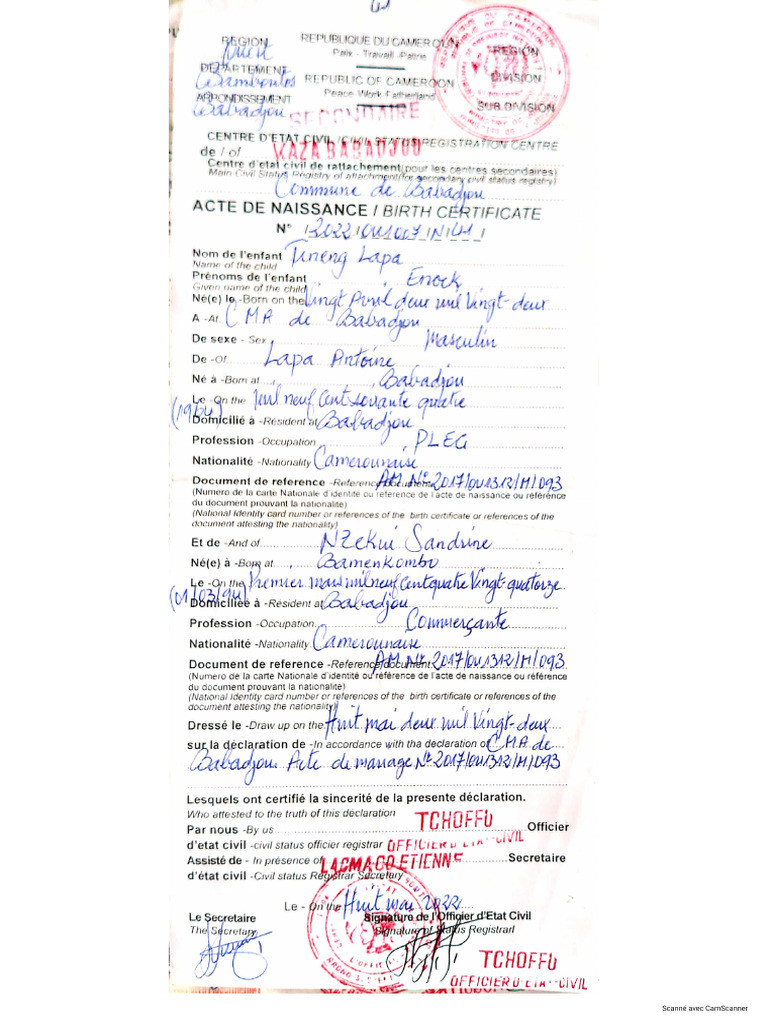 REGION
Ouest
DEPARTEMENT
Bamboutos
ARRONDISSEMENT
Babadjou
REPUBLIQUE DU CAMEROUN
Paix - Travail - Patrie
REPUBLIC OF CAMEROON
Peace-Work-Fatherland
REGION
DIVISION
SUB DIVISION
SECONDAIRE
CENTRE D'ETAT CIVIL / CIVIL STATUS REGISTRATION CENTRE
de / of KAZA BABADJOU
Centre d'etat civil de rattachement (pour les centres secondaires)
Main Civil Status Registry of attachment (for secondary civil status registry)
Commune de Babadjou
ACTE DE NAISSANCE / BIRTH CERTIFICATE
N° /2022/OU1007/N/41/
Nom de l'enfant Tineng Lapa
Name of the child
Prénoms de l'enfant Enock
Given name of the child
Né(e) le -Born on the Vingt Avril deux mil Vingt-deux
A -At CMA de Babadjou
De sexe - Sex Masculin
De -Of Lapa Antoine
Né à -Born at Babadjou
Le -On the mil neuf cent soixante quatre
(1964)
Domicilié à -Résident at Babadjou
Profession -Occupation PLEG
Nationalité -Nationality Camerounaise
Document de reference -Reference document AM N° 2017/OU1312/M/093
(Numero de la carte Nationale d'identité ou réference de l'acte de naissance ou référence
du document prouvant la nationalité)
(National Identity card number or references of the birth certificate or references of the
document attesting the nationality)
Et de -And of Nzekui Sandrine
Né(e) à -Born at Bamenkombo
Le -On the Premier mars mil neuf Cent quatre Vingt quatorze
(01/03/94)
Domiciliée à -Résident at Babadjou
Profession -Occupation Commerçante
Nationalité -Nationality Camerounaise
Document de reference -Reference document AM N° 2017/OU1312/M/093
(Numero de la carte Nationale d'identité ou réference de l'acte de naissance ou référence
du document prouvant la nationalité)
(National Identity card number or references of the birth certificate or references of the
document attesting the nationality)
Dressé le -Draw up on the Huit mai deux mil Vingt-deux
sur la déclaration de -In accordance with tha declaration of CMA de
Babadjou. Acte de mariage N° 2017/OU1312/M/093
Lesquels ont certifié la sincerité de la presente déclaration.
Who attested to the truth of this déclaration
Par nous -By us TCHOFFO Officier
d'etat civil -civil status officier registrar OFFICIER D'ETAT-CIVIL
Assisté de - In présence of LACMAGO ETIENNE Secretaire
d'état civil -Civil Status Registrar Secretary
Le - On the Huit mai 2022
Le Secretaire
The Secretary
Signature de l'Officier d'Etat Civil
Signature of Status Registrarl
TCHOFFO
OFFICIER D'ETAT-CIVIL
Scanné avec CamScanner